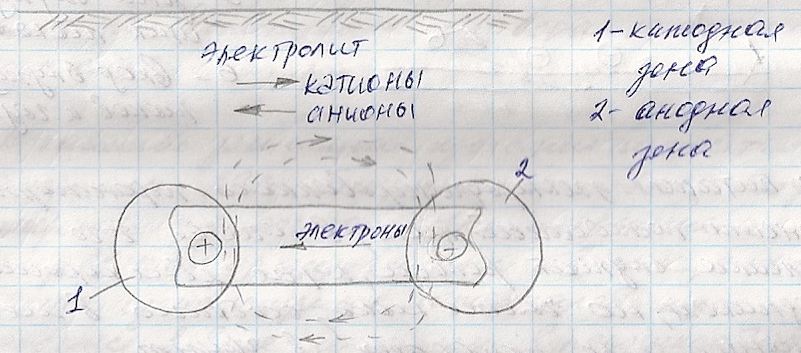 Электролит
катионы
анионы
1-катодная
зона
2- анодная
зона
2
электроны
+
-
1